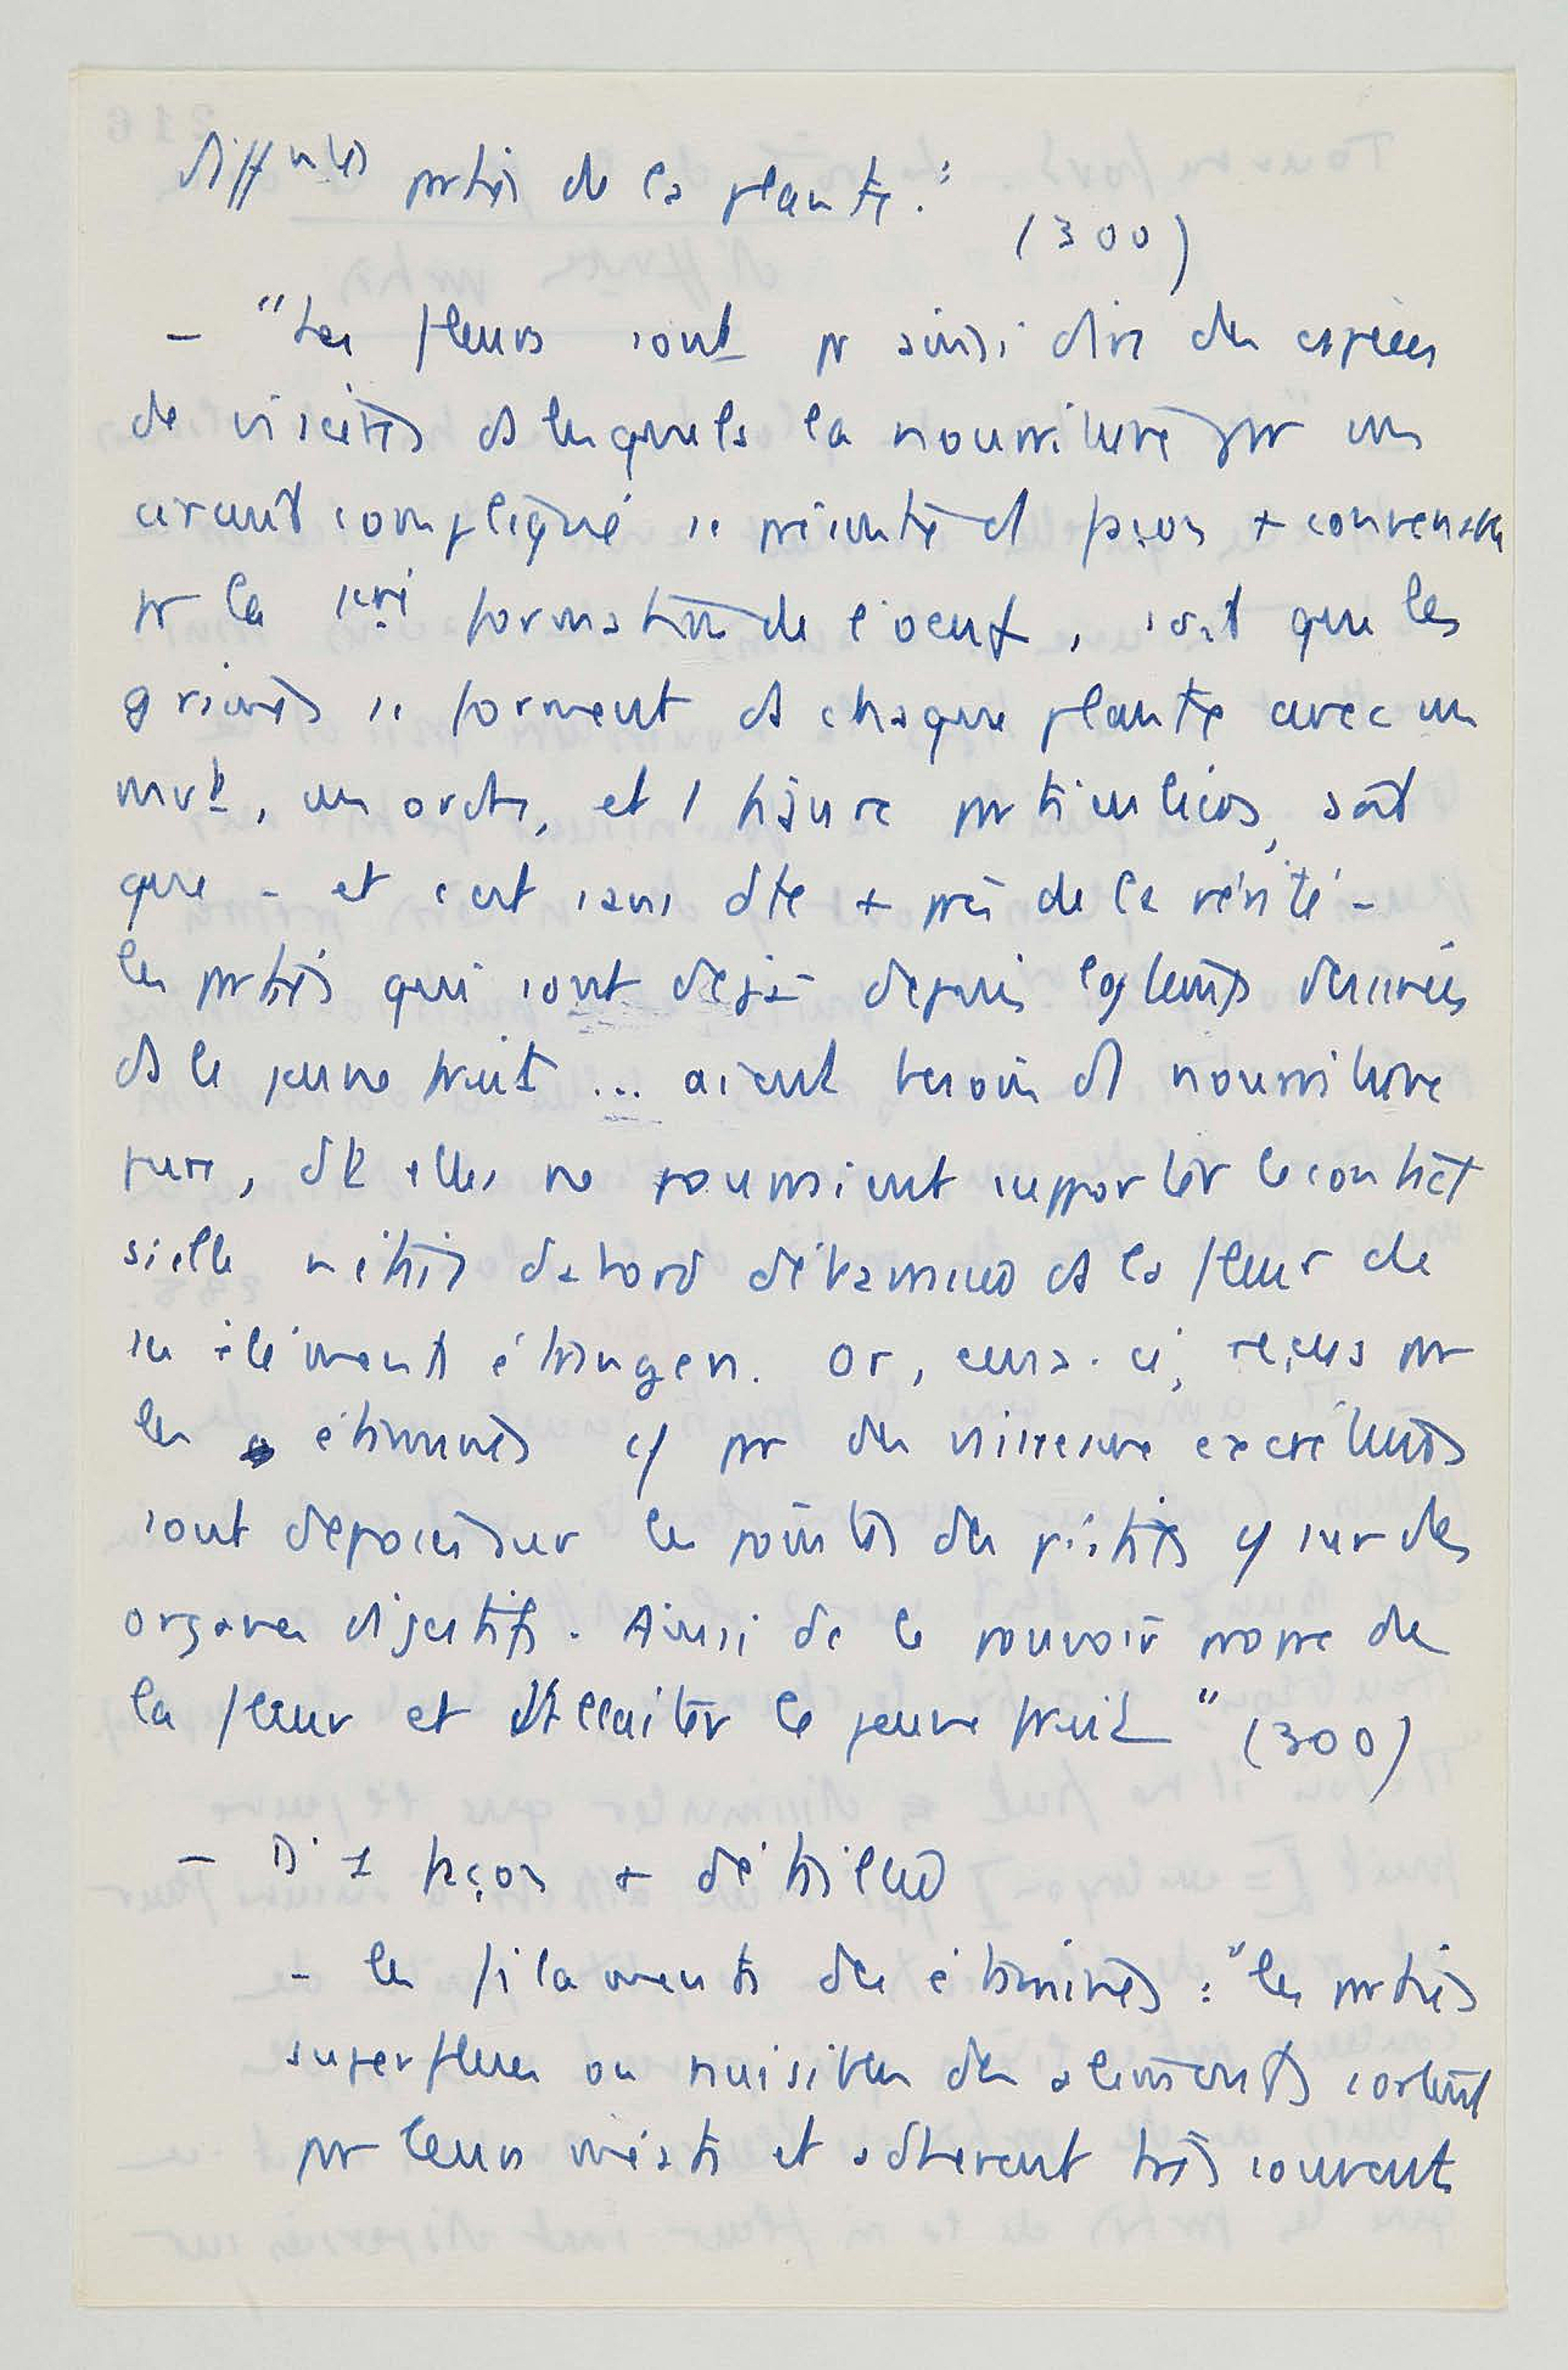 diffntes parties de la plante."
(300)
- "Les fleurs sont pr ainsi dire des espèces
de viscères ds lesquels la nourriture, par un
circuit compliqué se présente d' façon + convenable
pr la 1ère formation de l'oeuf, soit que les
graines se forment ds chaque plante avec un
mvt, un ordre, et 1 figure particuliers, soit
que - et c'est sans dte + près de la vérité -
les parties qui sont déjà depuis lgtemps dessinées
ds le jeune fruit ... aient besoin d' nourriture
pure, dt elles ne pourraient supporter le contact
si elle n'était d'abord débarrassée ds la fleur de
ses éléments étrangers. Or, ceux-ci, reçus par
les étamines cô par des vaisseaux excréteurs
sont déposés sur les pointes des pistils cô sur des
organes digestifs. Ainsi de le pouvoir propre de
la fleur est d'allaiter le jeune fruit" (300)
- D' 1 façon + détaillée
- les filaments des étamines : "les parties
superflues ou nuisibles des aliments sortent
par leurs méats et adhèrent très souvent